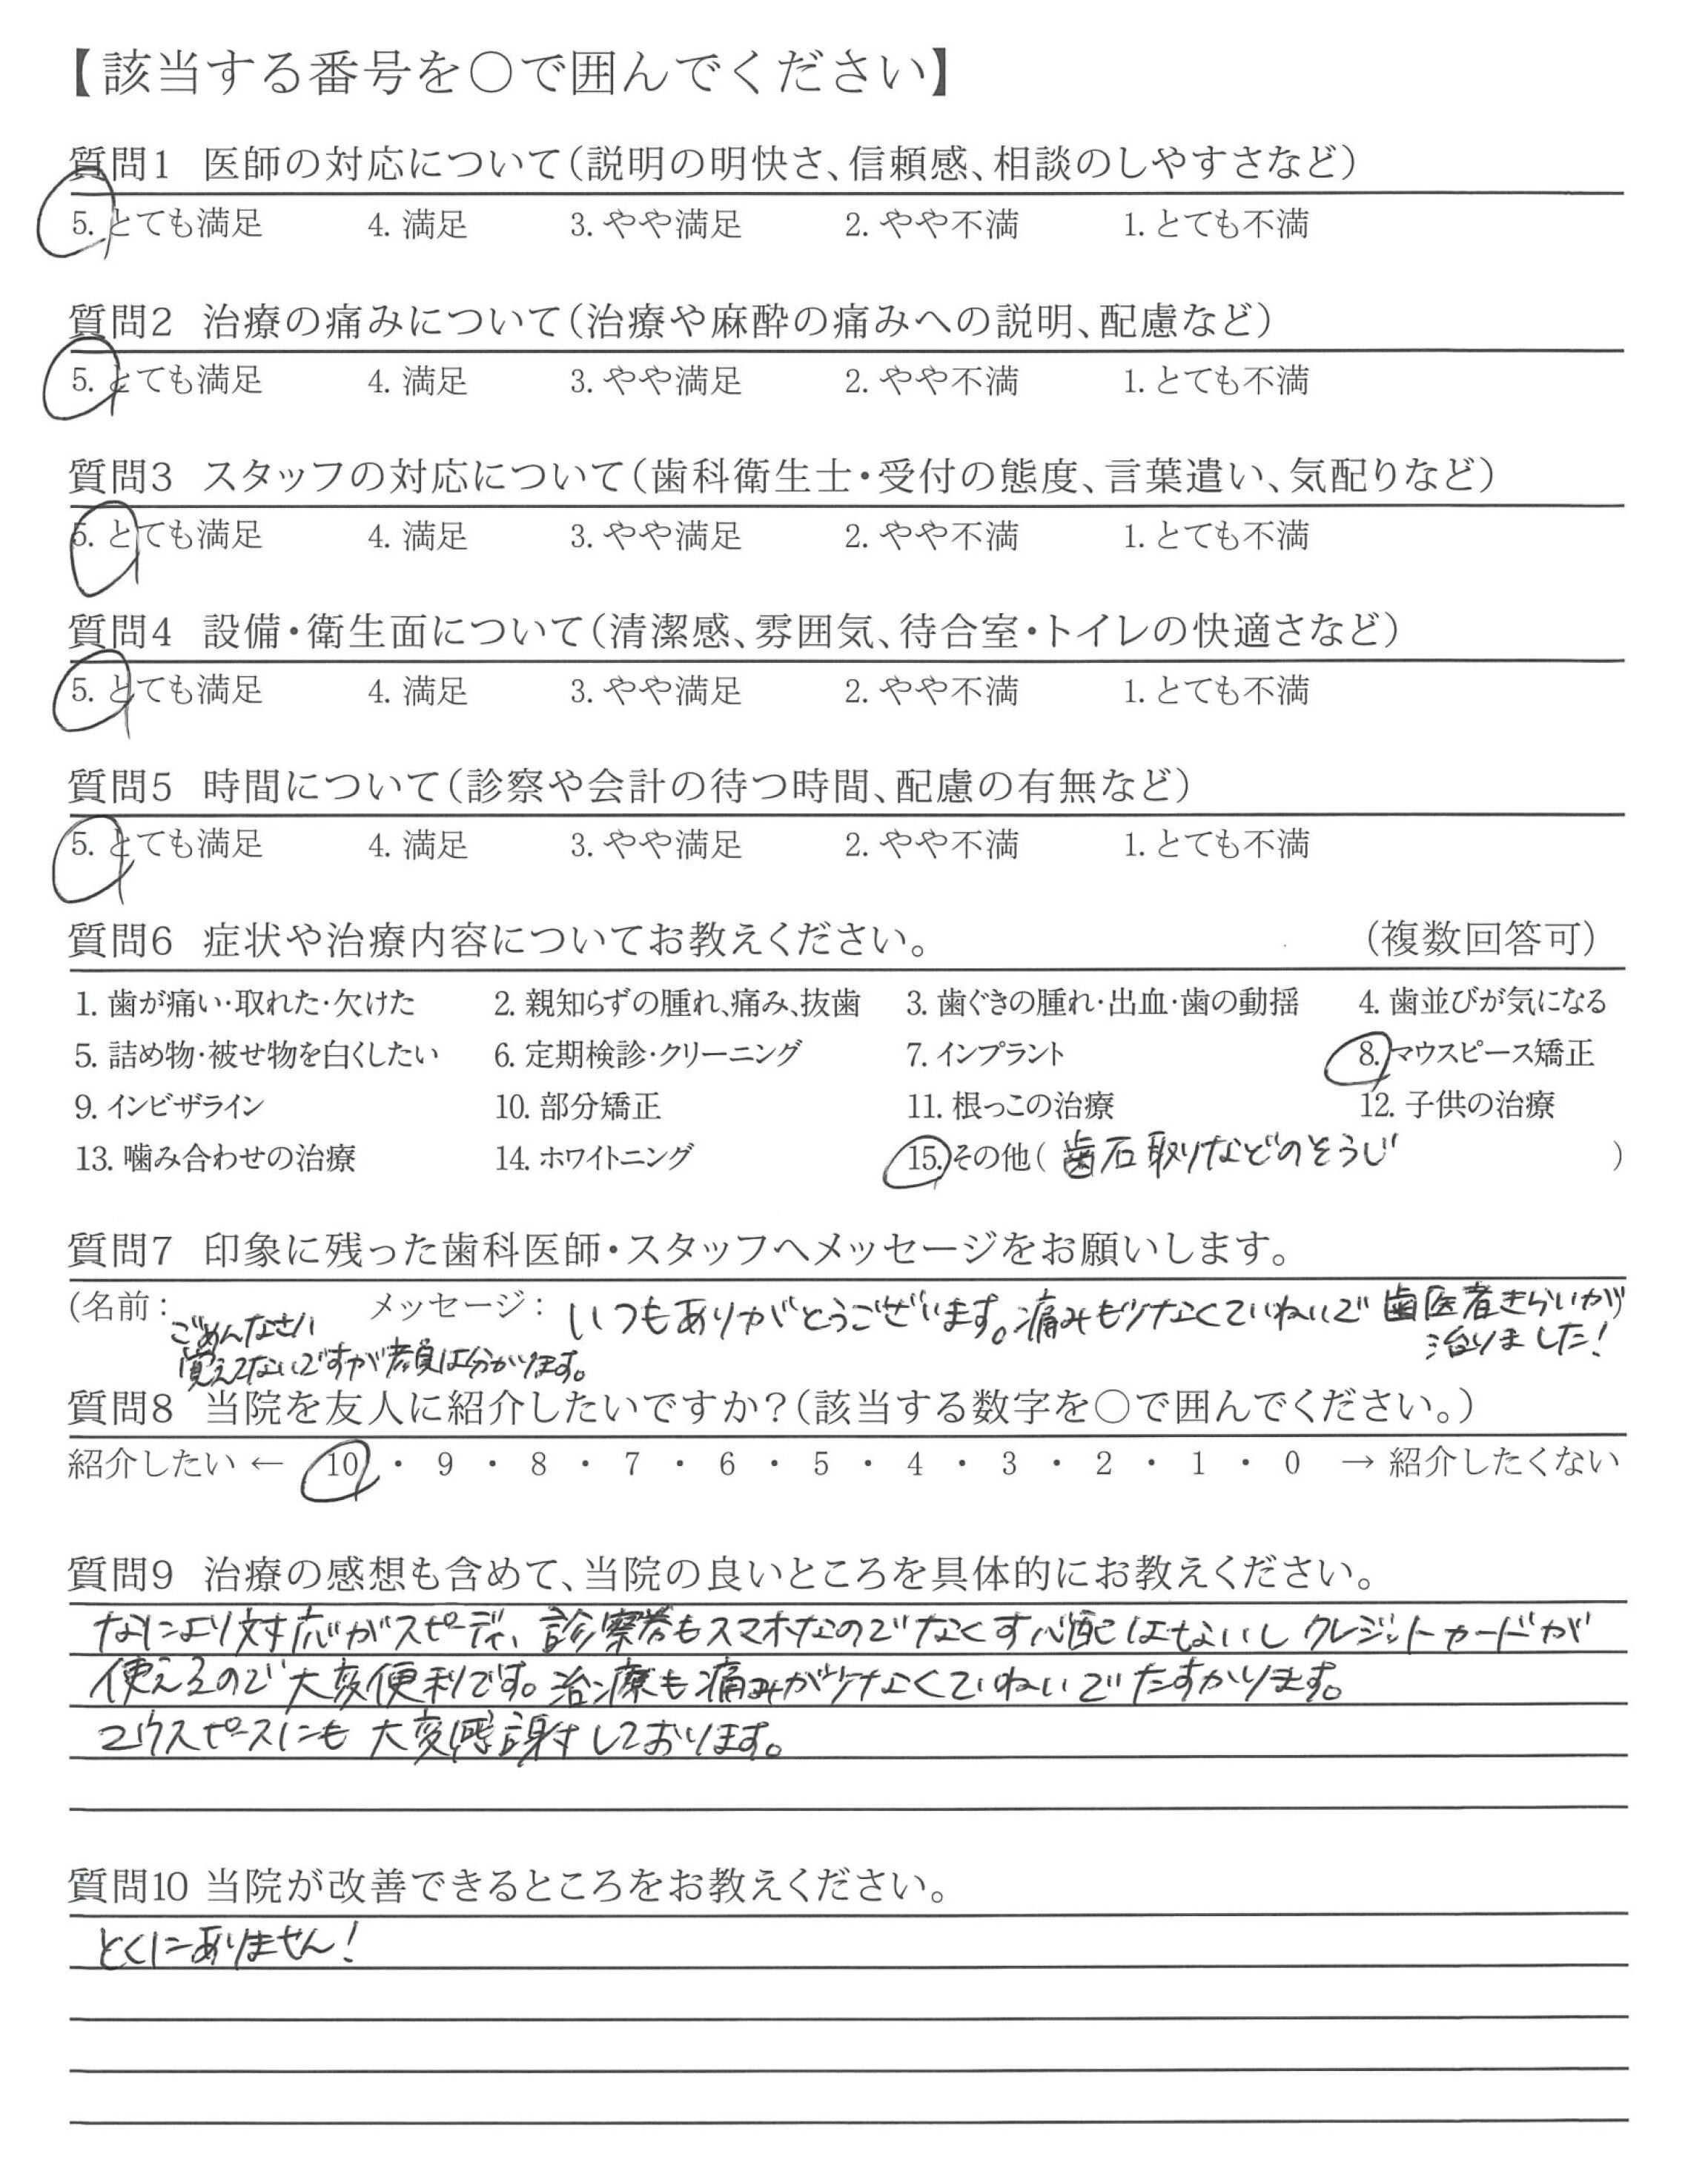 【該当する番号を〇で囲んでください】
質問1 医師の対応について（説明の明快さ、信頼感、相談のしやすさなど）
5. とても満足 4. 満足 3. やや満足 2. やや不満 1. とても不満
質問2 治療の痛みについて（治療や麻酔の痛みへの説明、配慮など）
5. とても満足 4. 満足 3. やや満足 2. やや不満 1. とても不満
質問3 スタッフの対応について（歯科衛生士・受付の態度、言葉遣い、気配りなど）
5. とても満足 4. 満足 3. やや満足 2. やや不満 1. とても不満
質問4 設備・衛生面について（清潔感、雰囲気、待合室・トイレの快適さなど）
5. とても満足 4. 満足 3. やや満足 2. やや不満 1. とても不満
質問5 時間について（診察や会計の待つ時間、配慮の有無など）
5. とても満足 4. 満足 3. やや満足 2. やや不満 1. とても不満
質問6 症状や治療内容についてお教えください。 （複数回答可）
1. 歯が痛い・取れた・欠けた 2. 親知らずの腫れ、痛み、抜歯 3. 歯ぐきの腫れ・出血・歯の動揺 4. 歯並びが気になる
5. 詰め物・被せ物を白くしたい 6. 定期検診・クリーニング 7. インプラント 8. マウスピース矯正
9. インビザライン 10. 部分矯正 11. 根っこの治療 12. 子供の治療
13. 噛み合わせの治療 14. ホワイトニング 15. その他（ 歯石取りなどのそうじ ）
質問7 印象に残った歯科医師・スタッフへメッセージをお願いします。
（名前： メッセージ： いつもありがとうございます。痛みも少なくていねいで 歯医者きらいが
治りました！
ごめんなさい
覚えてないですが顔は分かります。
質問8 当院を友人に紹介したいですか？（該当する数字を〇で囲んでください。）
紹介したい ← 10 ・ 9 ・ 8 ・ 7 ・ 6 ・ 5 ・ 4 ・ 3 ・ 2 ・ 1 ・ 0 → 紹介したくない
質問9 治療の感想も含めて、当院の良いところを具体的にお教えください。
なにより対応がスピーディ、診察券もスマホなのでなくす心配はないし クレジットカードが
使えるので大変便利です。治療も痛みが少なくていねいでたすかります。
マウスピースにも 大変感謝しております。
質問10 当院が改善できるところをお教えください。
とくにありません！